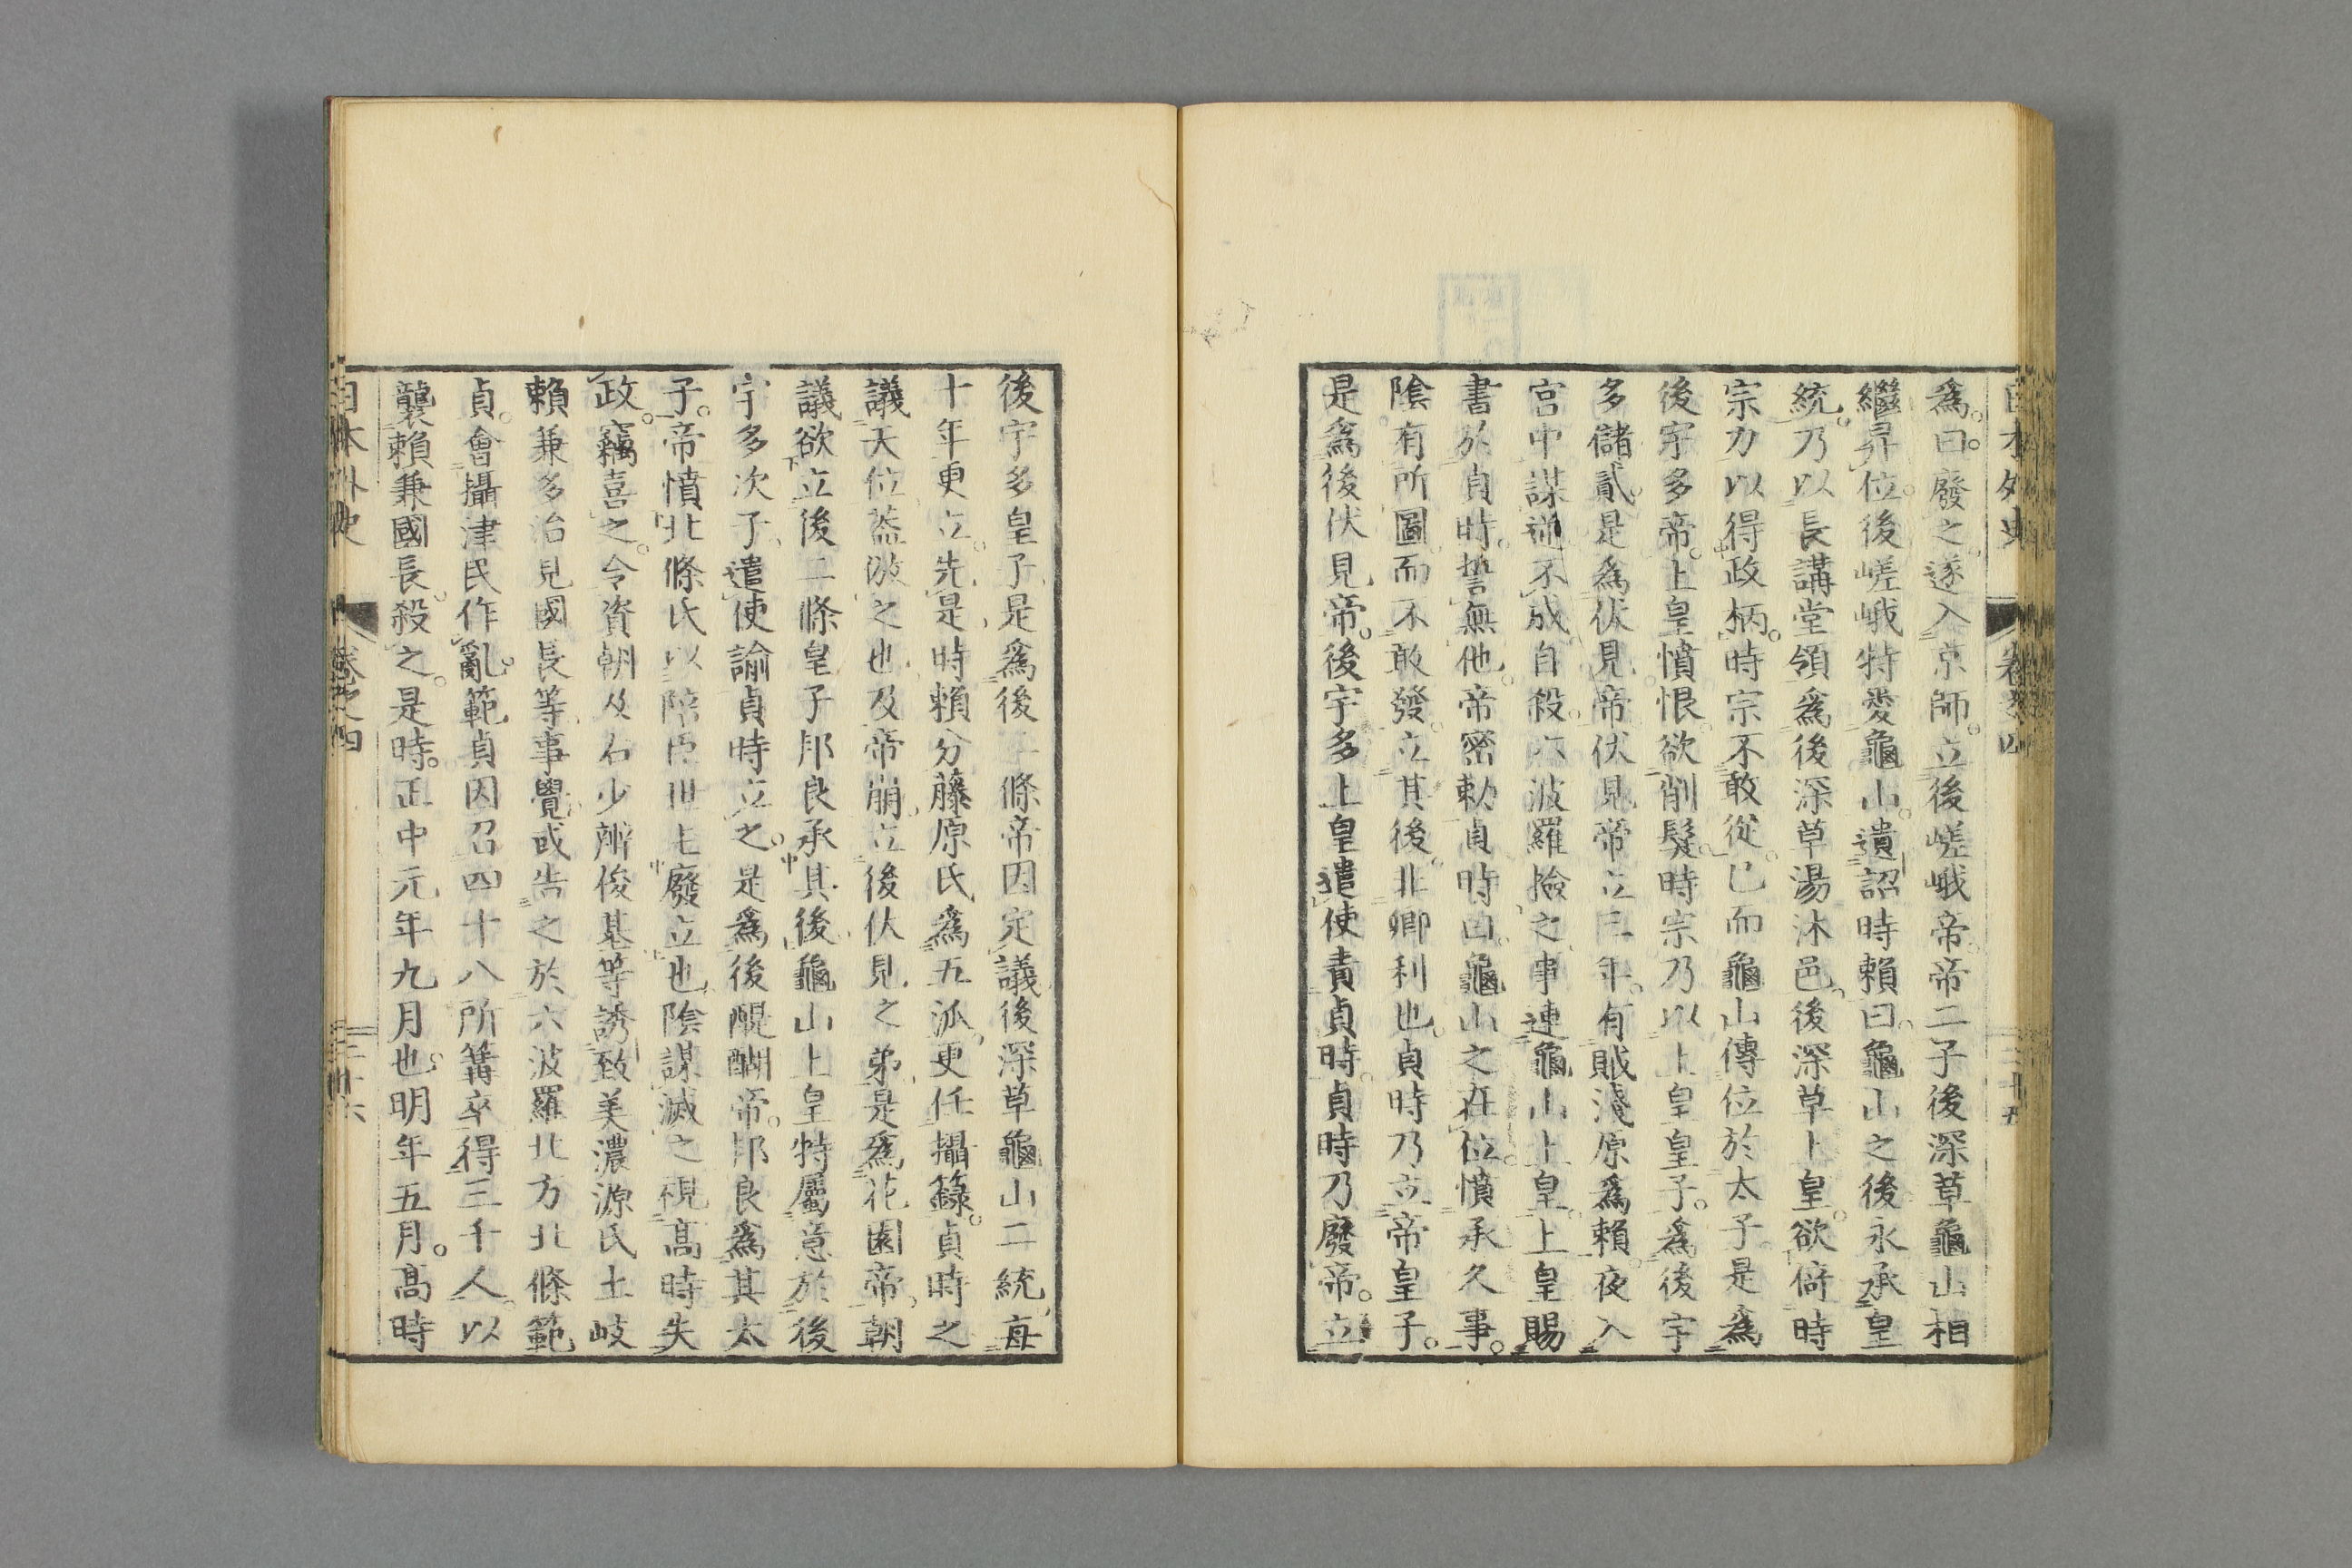 日本外史 卷之四 二十五
爲。曰。廢之。遂入京師。立後嵯峨帝。帝二子後深草龜山相
繼昇位。後嵯峨特愛龜山。遺詔時賴曰。龜山之後。永承皇
統。乃以長講堂領爲後深草湯沐邑。後深草上皇。欲倚時
宗力以得政柄。時宗不敢從。已而龜山傳位於太子。是爲
後宇多帝。上皇憤恨。欲削髮。時宗乃以上皇皇子。爲後宇
多儲貳。是爲伏見帝。伏見帝立三年。有賊淺原爲賴。夜入
宮中謀逆。不成自殺。六波羅撿之。事連龜山上皇。上皇賜
書於貞時。誓無他。帝密勅貞時曰。龜山之在位。憤承久事。
陰有所圖而不敢發。立其後。非卿利也。貞時乃立帝皇子。
是爲後伏見帝。後宇多上皇遣使責貞時。貞時乃廢帝。立
後宇多皇子。是爲後二條帝。因定議後深草龜山二統。每
十年更立。先是。時賴分藤原氏爲五派。更任攝籙。貞時之
議天位。葢倣之也。及帝崩。立後伏見之弟。是爲花園帝。朝
議欲立後二條皇子邦良承其後。龜山上皇特屬意於後
宇多次子。遣使諭貞時立之。是爲後醍醐帝。邦良爲其太
子。帝憤北條氏以陪臣世主廢立也。陰謀滅之。視高時失
政。竊喜之。令資朝及右少辨俊基等誘致美濃源氏土岐
賴兼多治見國長等。事覺。或告之於六波羅北方北條範
貞。會攝津民作亂。範貞因召四十八所篝卒。得三千人。以
襲賴兼國長。殺之。是時。正中元年九月也。明年五月。高時
日本外史 卷之四 二十六